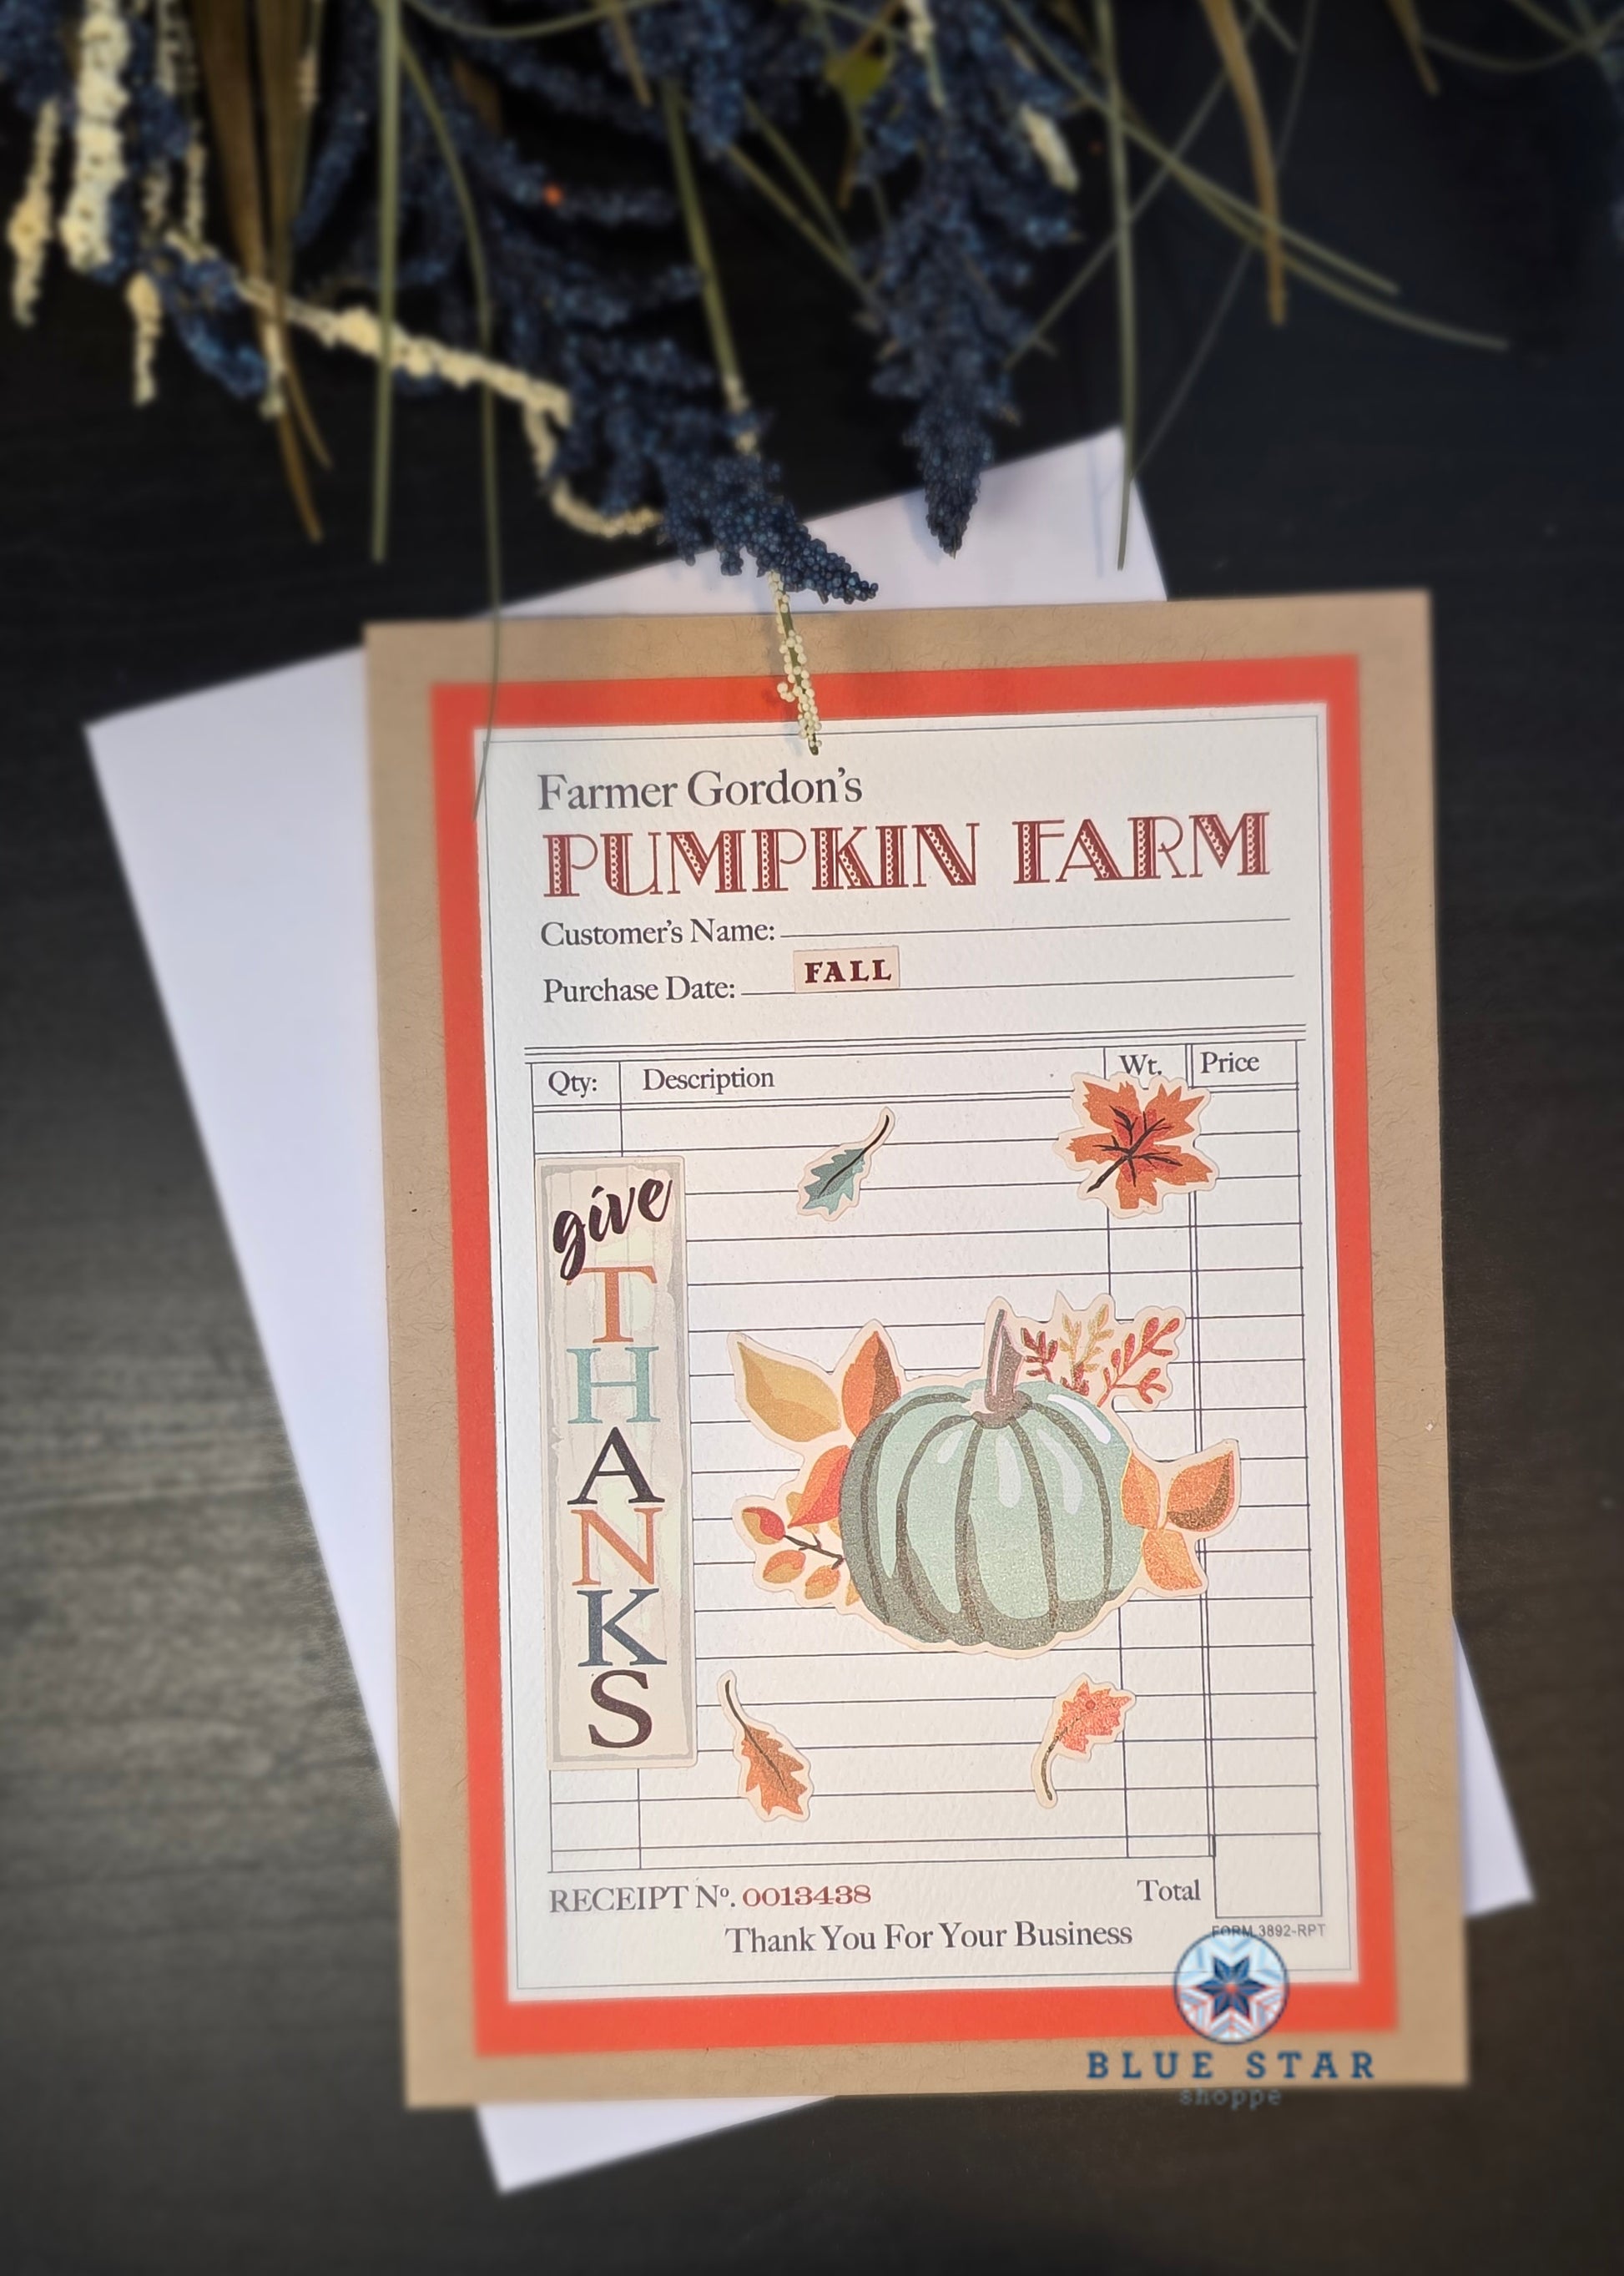 Farmer Gordon's
PUMPKIN FARM
Customer's Name:
Purchase Date: FALL
Qty: Description Wt. Price
give
THANKS
RECEIPT Nº. 0013438 Total
Thank You For Your Business
FORM 3892-RPT
BLUE STAR
shoppe